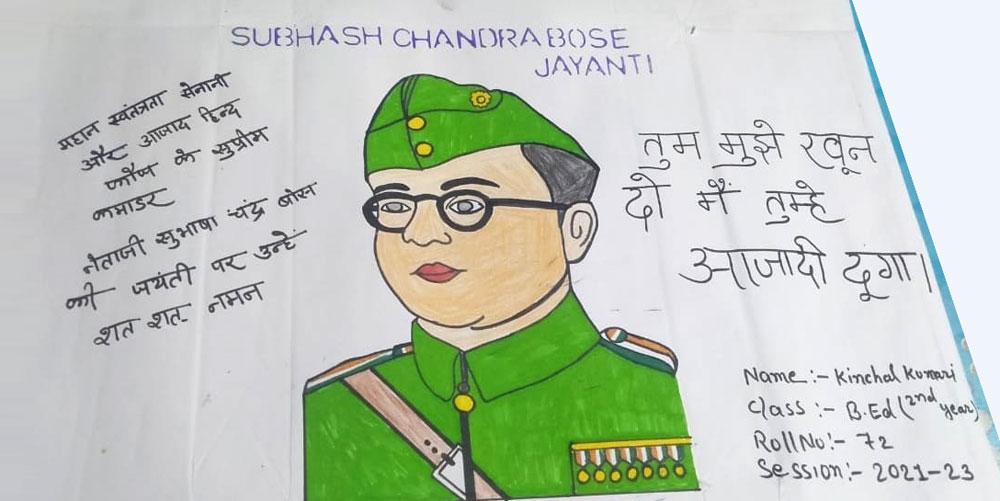 SUBHASH CHANDRA BOSE
JAYANTI
महान स्वतंत्रता सेनानी
और आजाद हिन्द
फौज के सुप्रीम
कमाडर
नेताजी सुभाषा चंद्र बोस
की जयंती पर उन्हें
शत शत- नमन
तुम मुझे खून
दो मैं तुम्हे
आजादी दूगा।
Name :- Kinchal Kumari
Class :- B.Ed (2nd year)
Roll No:- 72
Session:- 2021-23